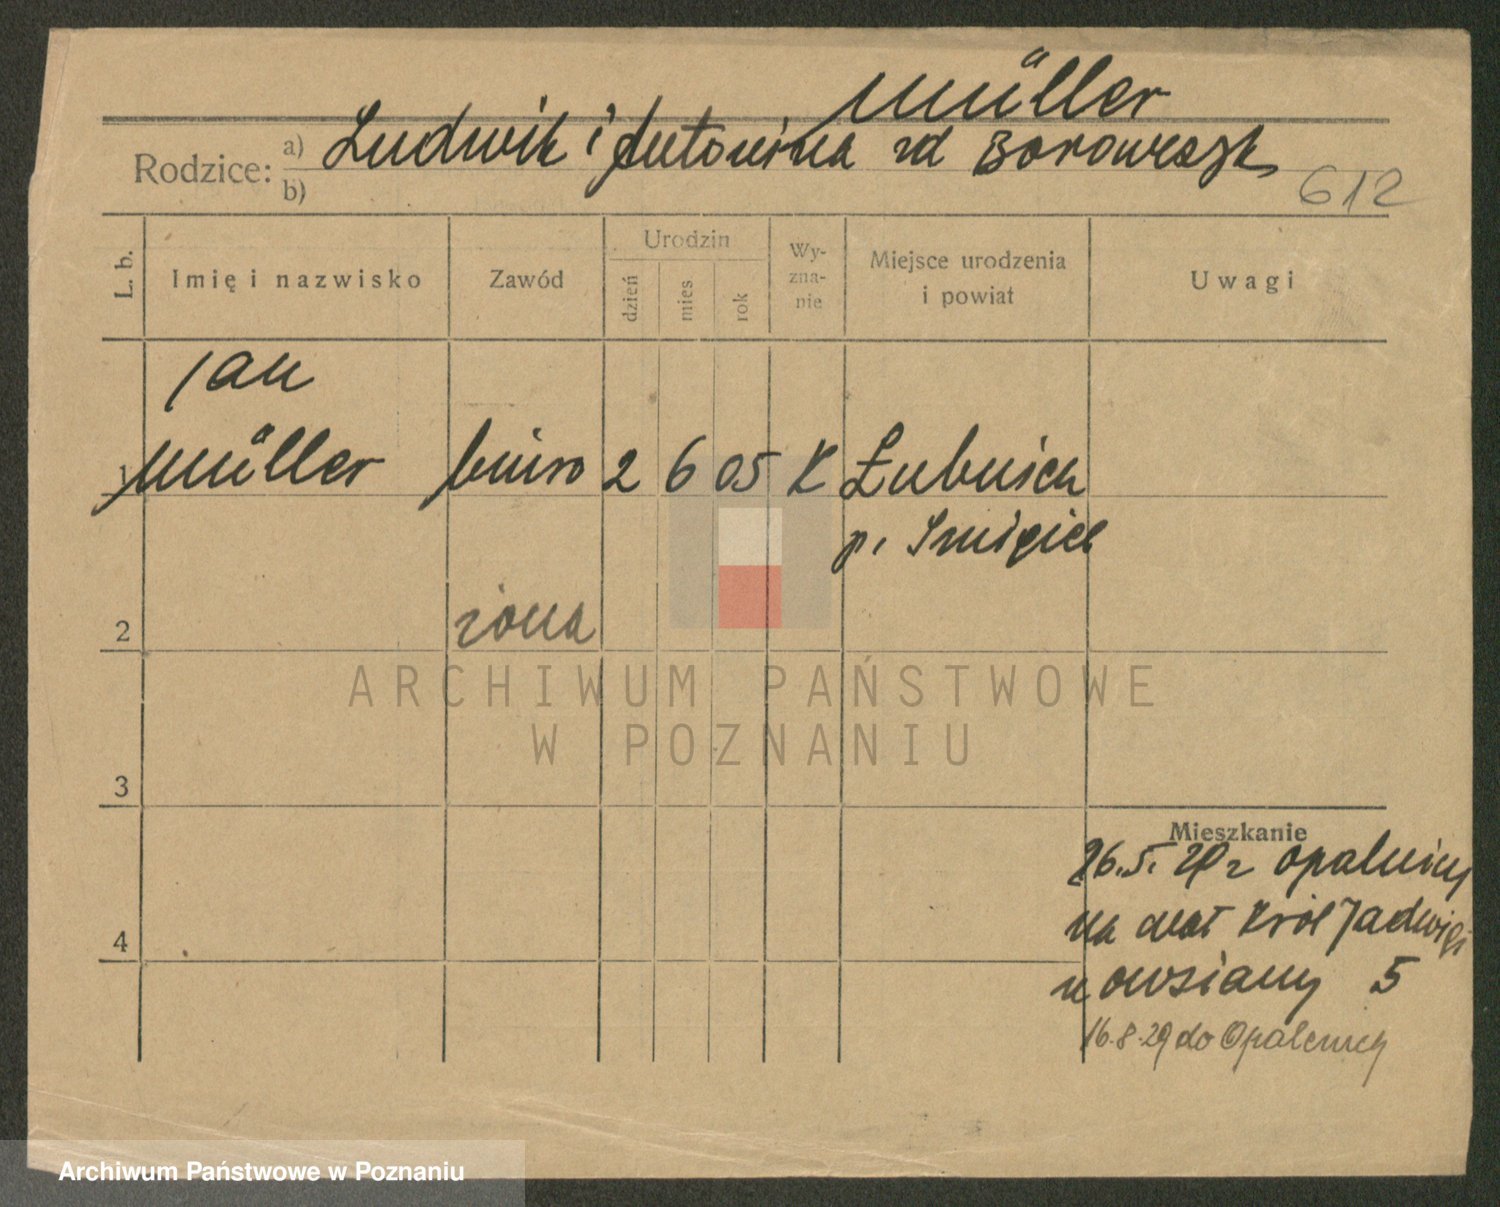 Müller
Rodzice: a) Ludwik i Antonina zd Borowczak
b)
612
L. b. Imię i nazwisko Zawód Urodzin dzień mies rok Wy-zna-nie Miejsce urodzenia i powiat Uwagi
Jan
1 Müller biuro 2 6 05 K Łubnica
p. Śmigiel
2 żona
ARCHIWUM PAŃSTWOWE
W POZNANIU
3
Mieszkanie
26.5. Opalenicy
4 na Król Jadwigi
5
16.8.29 do Opalenicy
Archiwum Państwowe w Poznaniu